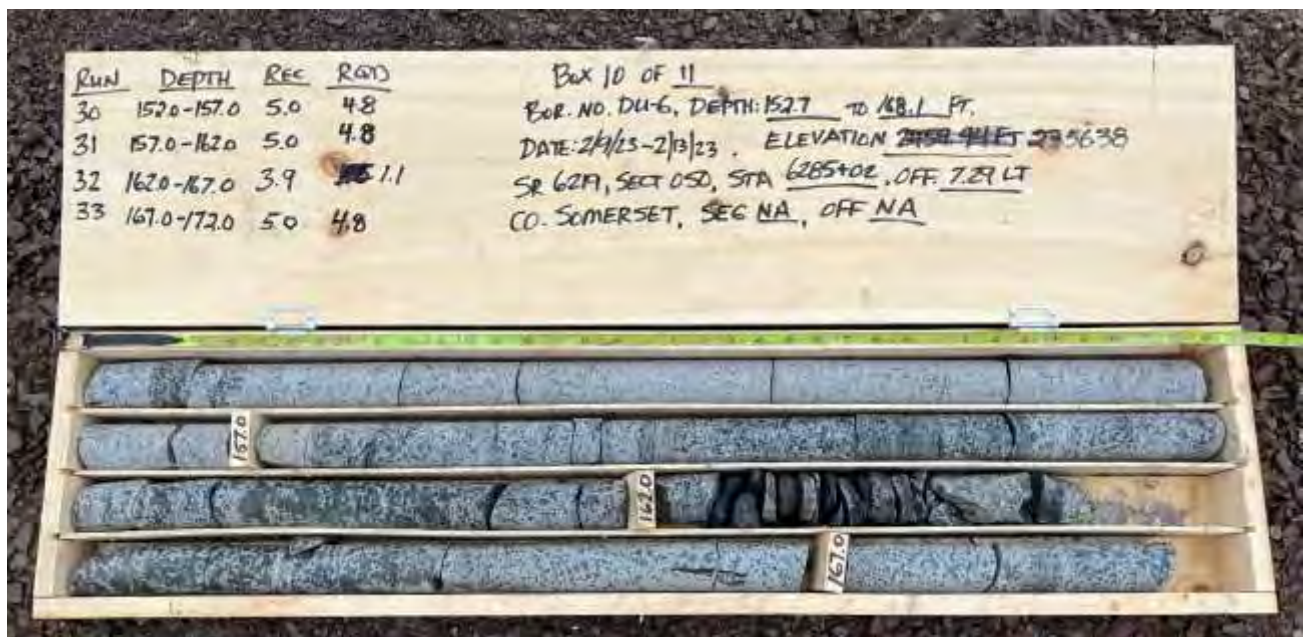 RUN DEPTH REC RQD
30 152.0-157.0 5.0 4.8
31 157.0-162.0 5.0 4.8
32 162.0-167.0 3.9 1.1
33 167.0-172.0 5.0 4.8
BOX 10 OF 11
BOR. NO. DU-6, DEPTH: 152.7 TO 168.1 FT.
DATE: 2/9/23-2/13/23. ELEVATION
SR 6219, SECT 050, STA 6285+02, OFF. 7.29 LT
CO. SOMERSET, SEG NA, OFF NA
157.0
162.0
167.0